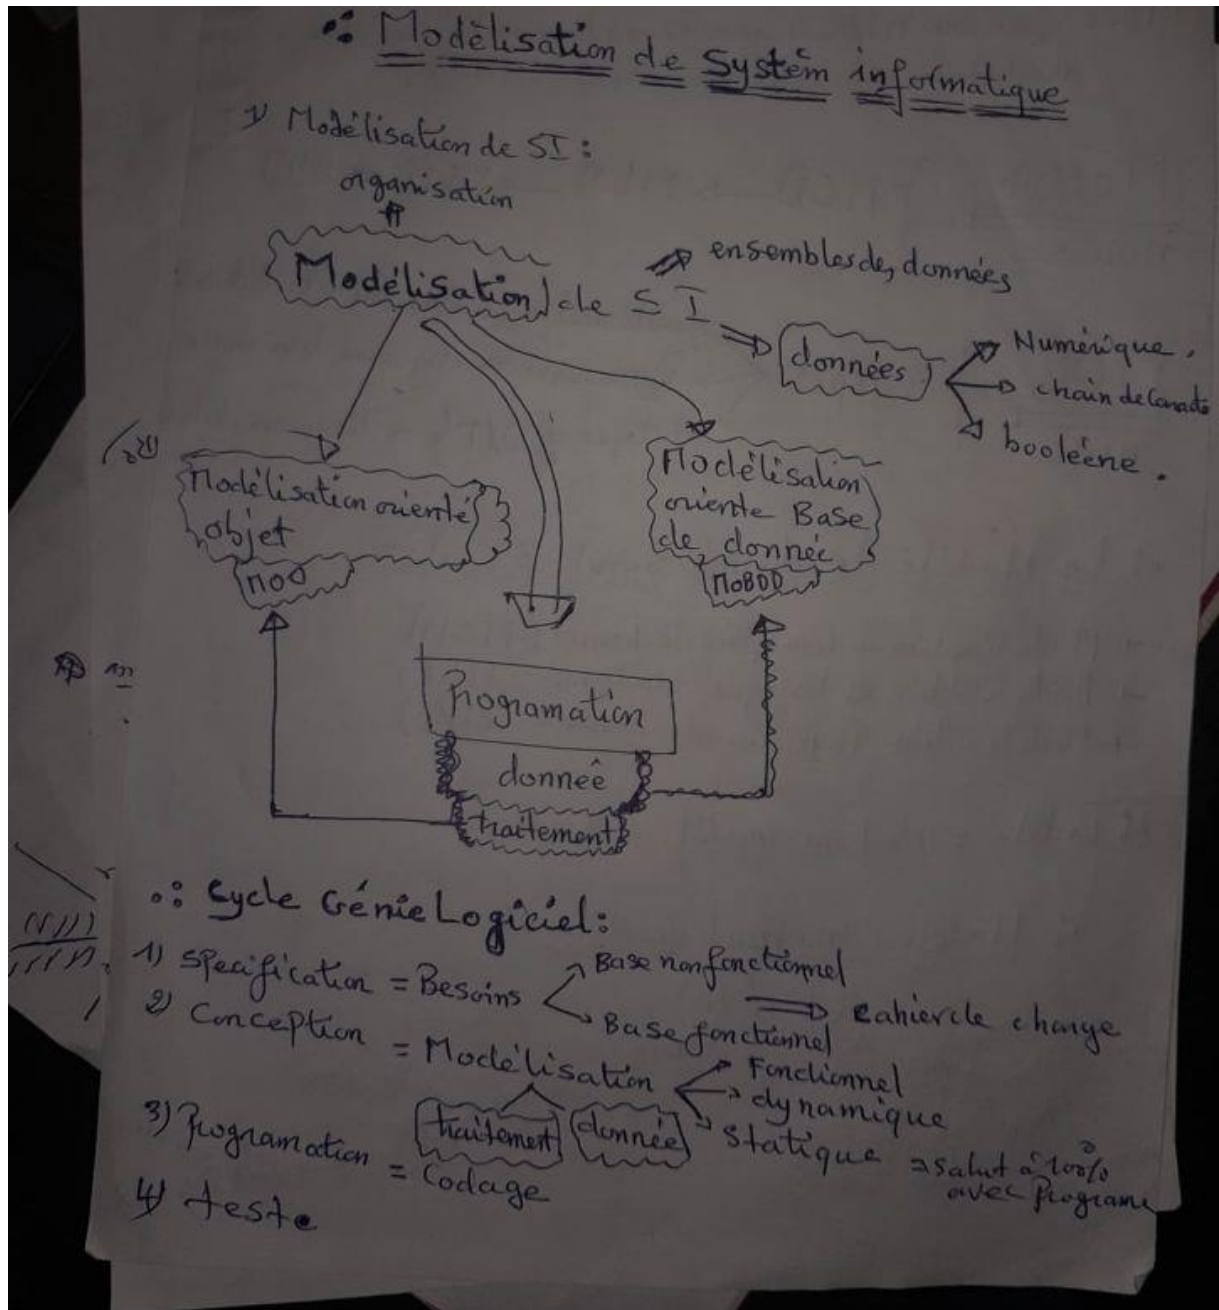 ∴ Modèlisation de Systém informatique
1) Modélisation de SI :
organisation
Modélisation de SI
ensembles des données
données
Numérique.
chain de
booléene.
Modèlisation orienté
objet
MOO
Modèlisation
oriente Base
de donnée
MOBDD
Programation
donneê
traitement
∴ Cycle Génie Logiciel :
1) Spécification = Besoins
Base non fonctionnel
Base fonctionnel
cahier de charge
2) Conception = Modèlisation
Fonctionnel
dynamique
Statique
traitement donnée
à 100%
avec Programe
3) Programation = Codage
4) teste